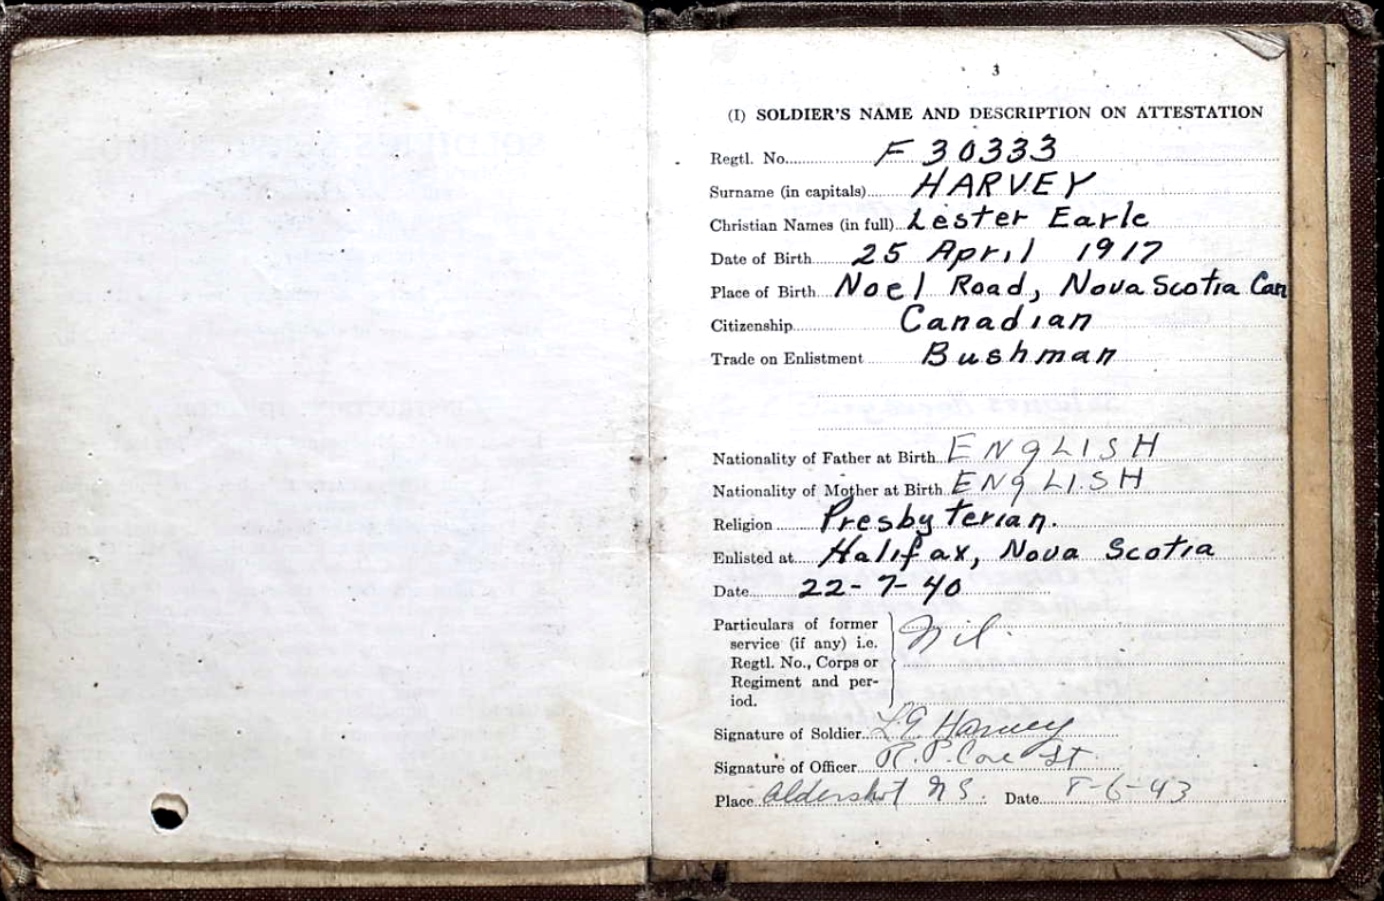 3
(I) SOLDIER'S NAME AND DESCRIPTION ON ATTESTATION
Regtl. No. F 30333
Surname (in capitals) HARVEY
Christian Names (in full) Lester Earle
Date of Birth 25 April 1917
Place of Birth Noel Road, Nova Scotia Can
Citizenship Canadian
Trade on Enlistment Bushman
Nationality of Father at Birth ENGLISH
Nationality of Mother at Birth ENGLISH
Religion Presbyterian.
Enlisted at Halifax, Nova Scotia
Date 22-7-40
Particulars of former
service (if any) i.e. Nil.
Regtl. No., Corps or
Regiment and per-
iod.
Signature of Soldier L.E. Harvey
Signature of Officer R.P.
Place Aldershot N S. Date 8-6-43